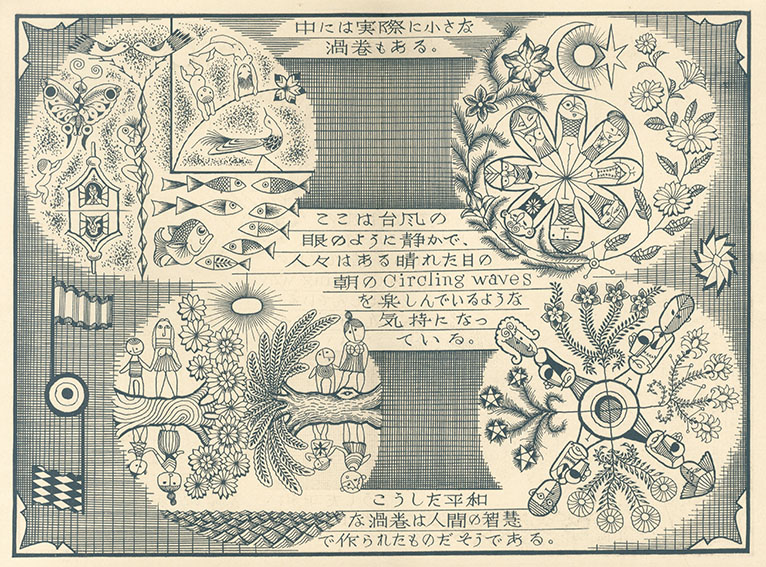 中には実際に小さな
渦巻もある。
ここは台風の
眼のように静かで、
人々はある晴れた日の
朝のCircling waves
を楽しんでいるような
気持になっ
ている。
こうした平和
な渦巻は人間の智慧
で作られたものだそうである。